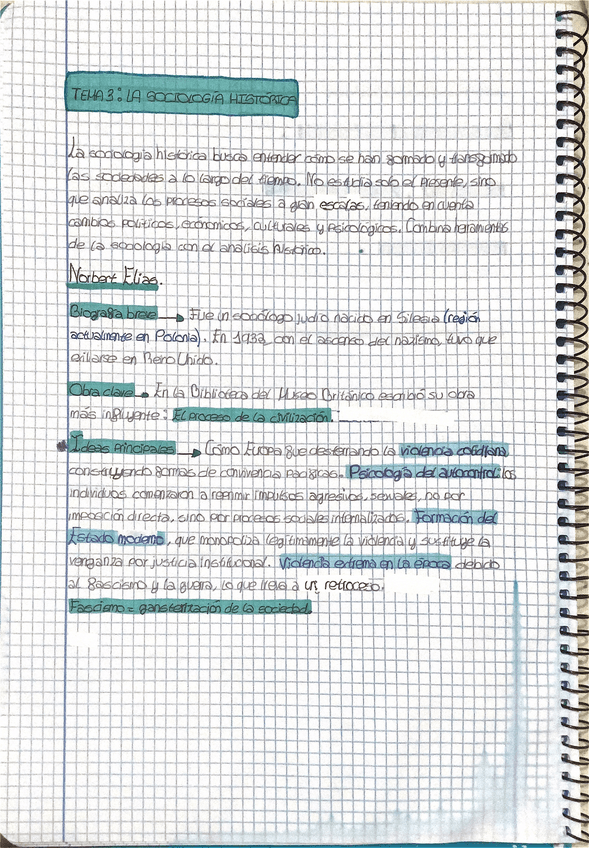 TEMA 3: LA SOCIOLOGÍA HISTÓRICA
La sociología histórica busca entender cómo se han formado y transformado
las sociedades a lo largo del tiempo. No estudia solo el presente, sino
que analiza los procesos sociales a gran escalas, teniendo en cuenta
cambios políticos, económicos, culturales y psicológicos. Combina herramientas
de la sociología con el análisis histórico.
Norbert Elias.
Biografía breve → Fue un sociólogo judío nacido en Silesia (región
actualmente en Polonia). En 1933, con el ascenso del nazismo, tuvo que
exiliarse en Reino Unido.
Obra clave → En la Biblioteca del Museo Británico escribió su obra
más influyente: El proceso de la civilización.
Ideas principales → Cómo Europa fue desterrando la violencia cotidiana
construyendo formas de convivencia pacíficas. Psicología del autocontrol: los
individuos comenzaron a reprimir impulsos agresivos, sexuales, no por
imposición directa, sino por procesos sociales internalizados. Formación del
Estado moderno, que monopoliza legítimamente la violencia y sustituye la
venganza por justicia institucional. Violencia extrema en la época debido
al fascismo y la guerra, lo que lleva a un retroceso.
Fascismo = gansterización de la sociedad.